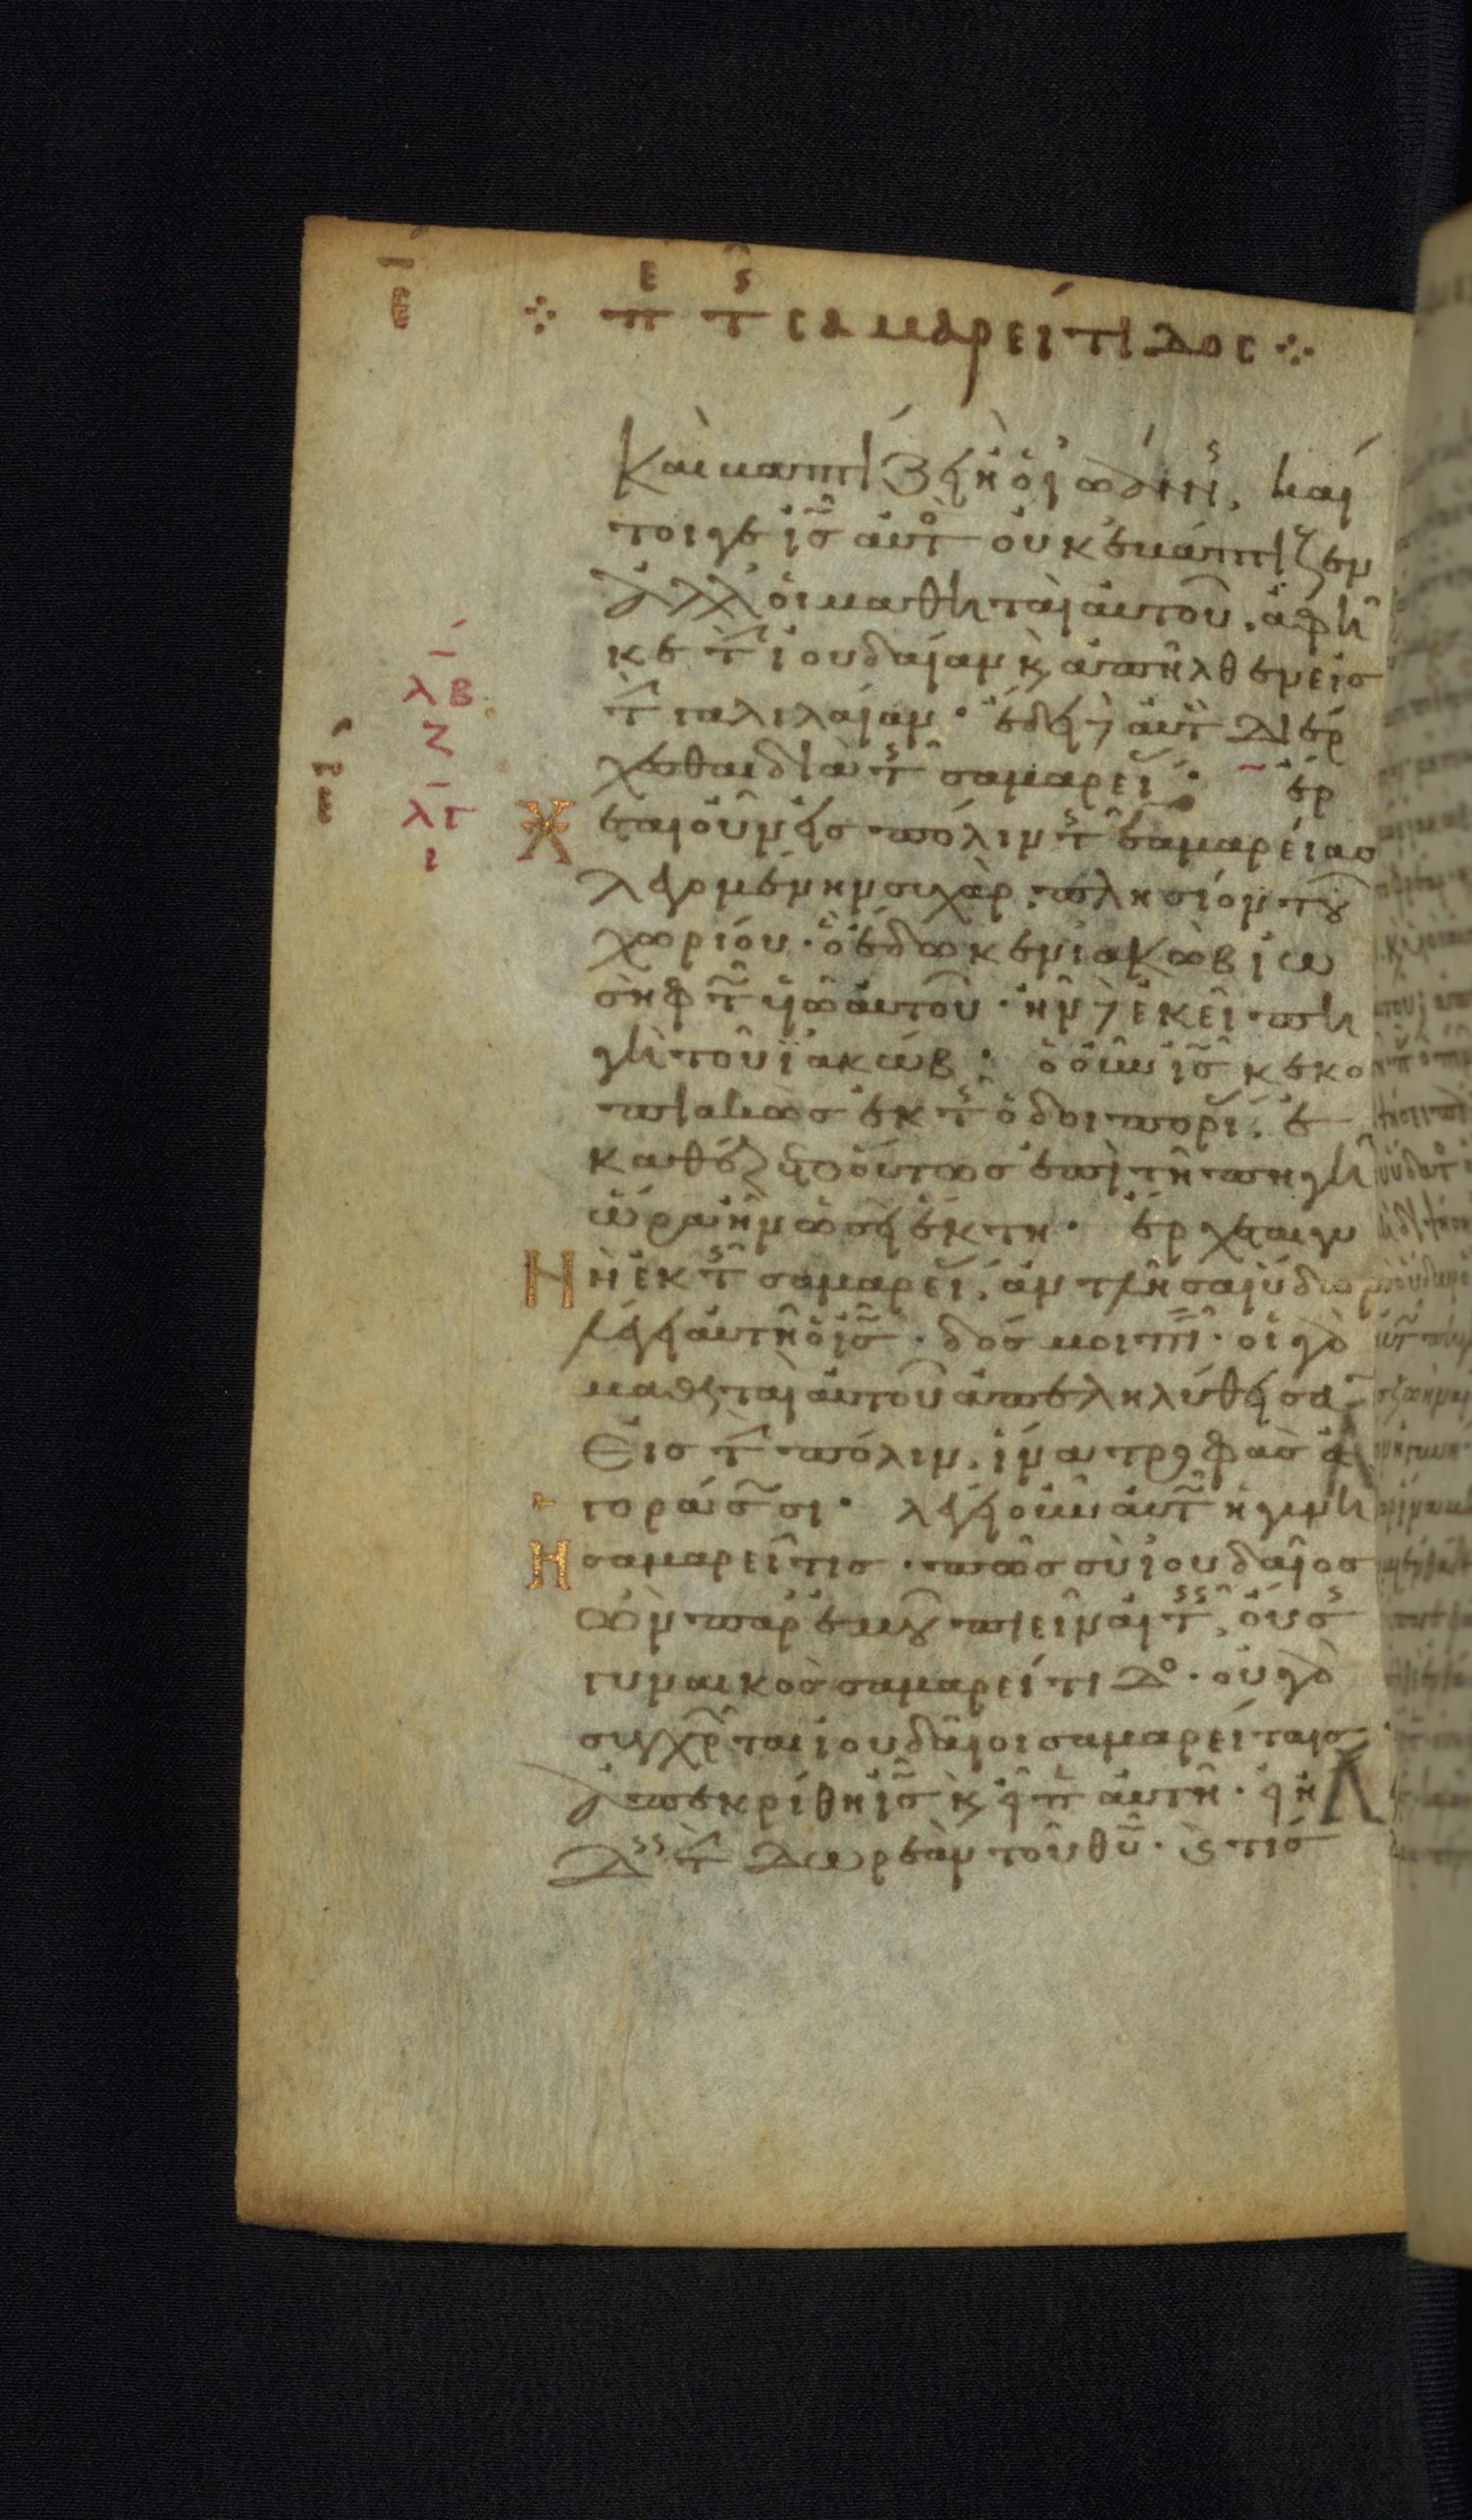 ε
περ της σαμαρείτιδος
καὶ βαπτίζει ἢ ὁ ἰωάννης, καί
τοιγε ις αὐτὸς οὐκ ἐβάπτιζεν
ἀλλ οἱ μαθηταὶ αὐτοῦ. ἀφῆ
κε τὴν ἰουδαίαν καὶ ἀπῆλθεν εἰς
τὴν γαλιλαίαν· ἔδει δὲ αὐτὸν διέρ
χεσθαι διὰ τῆς σαμαρείας· ἔρ
λβ
ζ
λγ
ι
χεται οὖν εἰς πόλιν τῆς σαμαρείας
λεγομένην συχὰρ. πλησίον τοῦ
χωρίου· ὃ ἔδωκεν ἰακὼβ ἰω
σὴφ τῷ υἱῷ αὐτοῦ· ἦν δὲ ἐκεῖ πη
γὴ τοῦ ἰακώβ· ὁ οὖν ις κεκο
πιακὼς ἐκ τῆς ὁδοιπορίας ἐ
καθέζετο οὕτως ἐπὶ τῇ πηγῇ
ὥρα ἦν ὡσεὶ ἕκτη· ἔρχεται γυ
νὴ ἐκ τῆς σαμαρείας ἀντλῆσαι ὕδωρ
λέγει αὐτῇ ὁ ις· δός μοι πιεῖν· οἱ γὰρ
μαθηταὶ αὐτοῦ ἀπεληλύθεισαν
εἰς τὴν πόλιν. ἵνα τροφὰς ἀ
γοράσωσι· λέγει οὖν αὐτῷ ἡ γυνὴ
ἡ σαμαρεῖτις· πῶς σὺ ἰουδαῖος
ὢν παρ ἐμοῦ πιεῖν αἰτεῖς, οὔσης
γυναικὸς σαμαρείτιδος· οὐ γὰρ
συγχρῶνται ἰουδαῖοι σαμαρείταις
ἀπεκρίθη ις καὶ εἶπεν αὐτῇ· εἰ ᾔ
δεις τὴν δωρεὰν τοῦ θυ· καὶ τίς